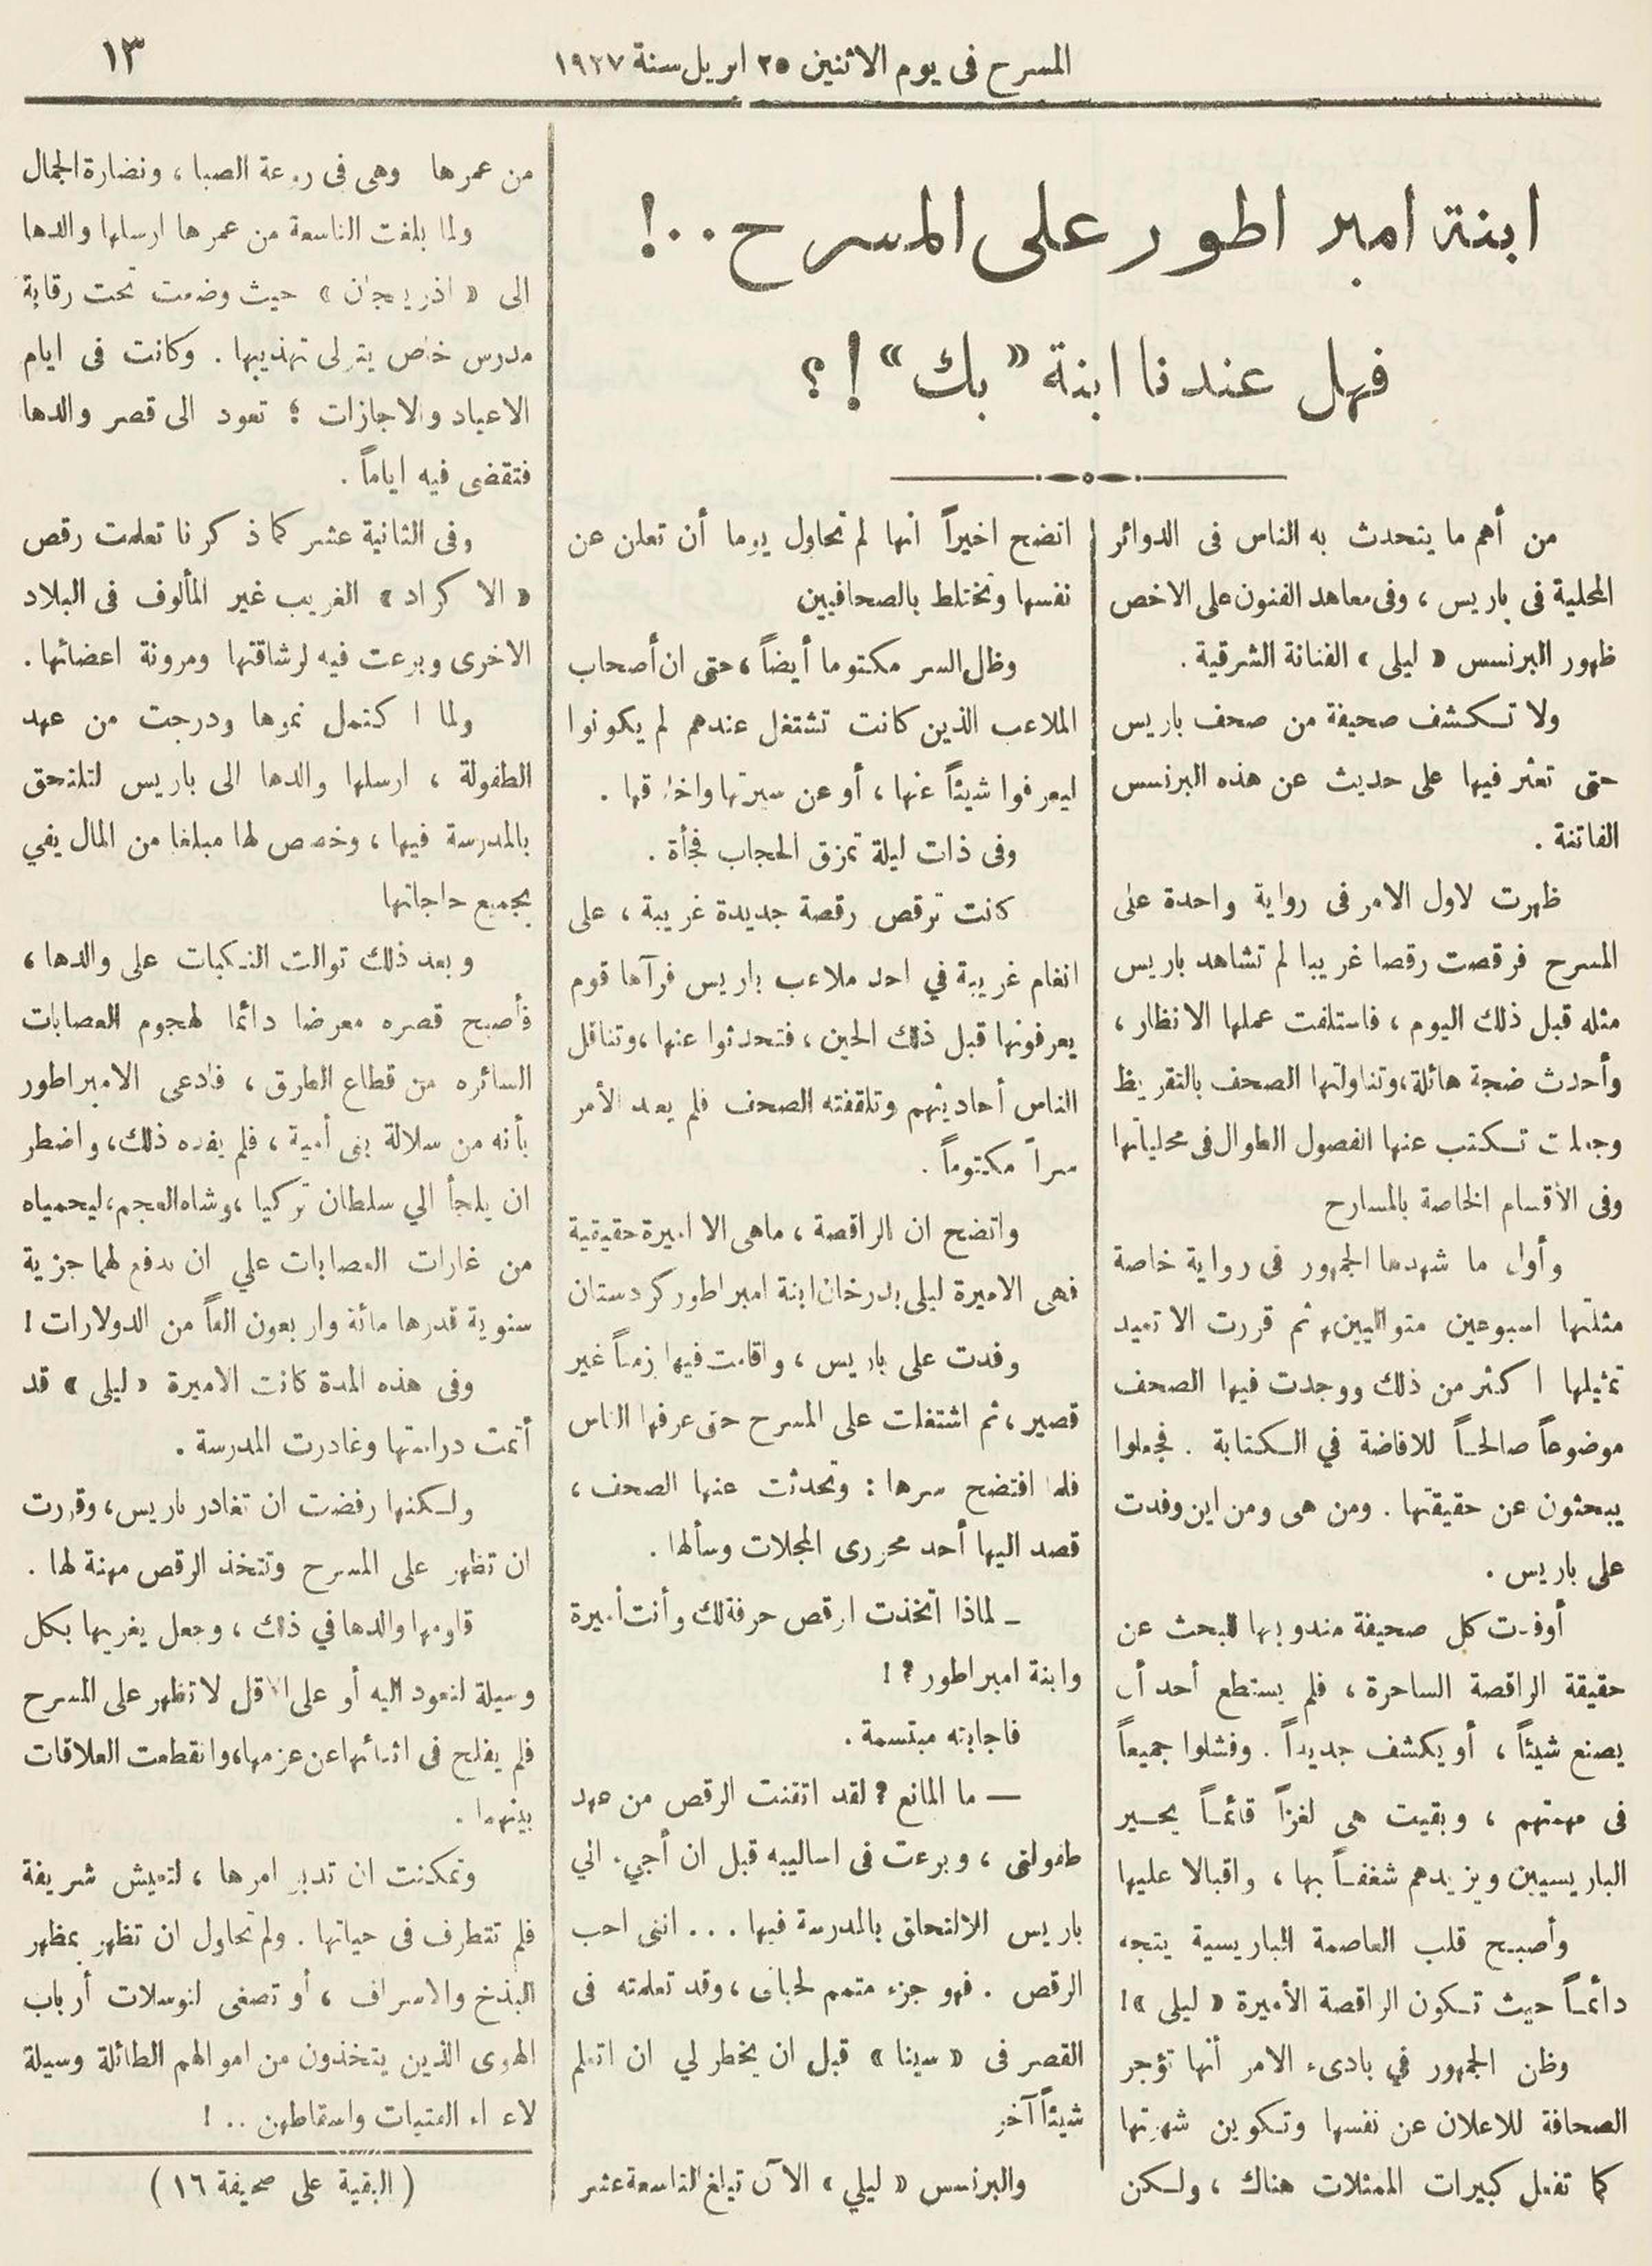 المسرح فى يوم الاثنين ٢٥ ابريل سنة ١٩٢٧
١٣
ابنة امبراطور على المسرح . . !
فهل عندنا ابنة « بك » ! ؟
من أهم ما يتحدث به الناس فى الدوائر
المحلية فى باريس ، وفى معاهد الفنون على الاخص
ظهور البرنسس « ليلى » الفنانة الشرقية .
ولا تكشف صحيفة من صحف باريس
حتى تعثر فيها على حديث عن هذه البرنسس
الفاتنة .
ظهرت لاول الامر فى رواية واحدة على
المسرح فرقصت رقصا غريبا لم تشاهد باريس
مثله قبل ذلك اليوم ، فاستلفت عملها الانظار ،
وأحدث ضجة هائلة ، وتناولتها الصحف بالتقريظ
وجعلت تكتب عنها الفصول الطوال فى محلياتها
وفى الأقسام الخاصة بالمسارح
وأول ما شهدها الجمهور فى رواية خاصة
مثلتها اسبوعين متواليين ، ثم قررت الا تعيد
تمثيلها اكثر من ذلك ووجدت فيها الصحف
موضوعاً صالحاً للافاضة في الكتابة . فجعلوا
يبحثون عن حقيقتها . ومن هى ومن اين وفدت
على باريس .
أوفدت كل صحيفة مندوبها للبحث عن
حقيقة الراقصة الساحرة ، فلم يستطع أحد أن
يصنع شيئاً ، أو يكشف جديداً . وفشلوا جميعاً
فى مهمتهم ، وبقيت هى لغزاً قائماً يحير
الباريسيين ويزيدهم شغفاً بها ، واقبالا عليها
وأصبح قلب العاصمة الباريسية يتجه
دائماً حيث تكون الراقصة الأميرة « ليلى » !
وظن الجمهور في بادىء الامر أنها تؤجر
الصحافة للاعلان عن نفسها وتكوين شهرتها
كما تفعل كبيرات الممثلات هناك ، ولكن
اتضح اخيراً انها لم تحاول يوما أن تعلن عن
نفسها وتختلط بالصحافيين
وظل السر مكتوما أيضاً ، حتى ان أصحاب
الملاعب الذين كانت تشتغل عندهم لم يكونوا
ليعرفوا شيئاً عنها ، أو عن سيرتها واخلاقها .
وفى ذات ليلة تمزق الحجاب فجأة .
كانت ترقص رقصة جديدة غريبة ، على
انغام غريبة في احد ملاعب باريس فرآها قوم
يعرفونها قبل ذلك الحين ، فتحدثوا عنها ، وتناقل
الناس أحاديثهم وتلقفته الصحف فلم يعد الأمر
سراً مكتوماً .
واتضح ان الراقصة ، ماهى الا اميرة حقيقية
فهى الاميرة ليلى بدرخان ابنة امبراطور كردستان
وفدت على باريس ، واقامت فيها زمناً غير
قصير ، ثم اشتغلت على المسرح حتى عرفها الناس
فلما افتضح سرها : وتحدثت عنها الصحف ،
قصد اليها أحد محررى المجلات وسألها .
ـ لماذا اتخذت الرقص حرفة لك وأنت أميرة
وابنة امبراطور ? !
فاجابته مبتسمة .
— ما المانع ? لقد اتقنت الرقص من عهد
طفولتى ، وبرعت فى اساليبه قبل ان أجيء الي
باريس للالتحاق بالمدرسة فيها . . . اننى احب
الرقص . فهو جزء متمم لحياتى ، وقد تعلمته فى
القصر فى « سينا » قبل ان يخطر لي ان اتعلم
شيئاً آخر
والبرنسس « ليلي » الآن تبلغ التاسعة عشر
من عمرها وهى فى روعة الصبا ، ونضارة الجمال
ولما بلغت التاسعة من عمرها ارسلها والدها
الى « اذربيجان » حيث وضعت تحت رقابة
مدرس خاص يتولى تهذيبها . وكانت فى ايام
الاعياد والاجازات ؛ تعود الى قصر والدها
فتقضى فيه اياماً .
وفى الثانية عشر كما ذكرنا تعلمت رقص
« الاكراد » الغريب غير المألوف فى البلاد
الاخرى وبرعت فيه لرشاقتها ومرونة اعضائها .
ولما اكتمل نموها ودرجت من عهد
الطفولة ، ارسلها والدها الى باريس لتلتحق
بالمدرسة فيها ، وخصص لها مبلغا من المال يفي
بجميع حاجاتها
وبعد ذلك توالت النكبات على والدها ،
فأصبح قصره معرضا دائما لهجوم العصابات
السائره من قطاع الطرق ، فادعى الامبراطور
بأنه من سلالة بنى أمية ، فلم يفده ذلك ، واضطر
ان يلجأ الي سلطان تركيا ، وشاه العجم ، ليحمياه
من غارات العصابات علي ان يدفع لهما جزية
سنوية قدرها مائة واربعون الفاً من الدولارات !
وفى هذه المدة كانت الاميرة « ليلى » قد
أتمت دراستها وغادرت المدرسة .
ولكنها رفضت ان تغادر باريس ، وقررت
ان تظهر على المسرح وتتخذ الرقص مهنة لها .
قاومها والدها في ذلك ، وجعل يغريها بكل
وسيلة لتعود اليه أو على الاقل لا تظهر على المسرح
فلم يفلح فى اثنائها عن عزمها ، وانقطعت العلاقات
بينهما .
وتمكنت ان تدبر امرها ، لتعيش شريفة
فلم تتطرف فى حياتها . ولم تحاول ان تظهر بمظهر
البذخ والاسراف ، أو تصغى لتوسلات أرباب
الهوى الذين يتخذون من اموالهم الطائلة وسيلة
لاغراء الفتيات واسقاطهن . . !
( البقية على صحيفة ١٦ )